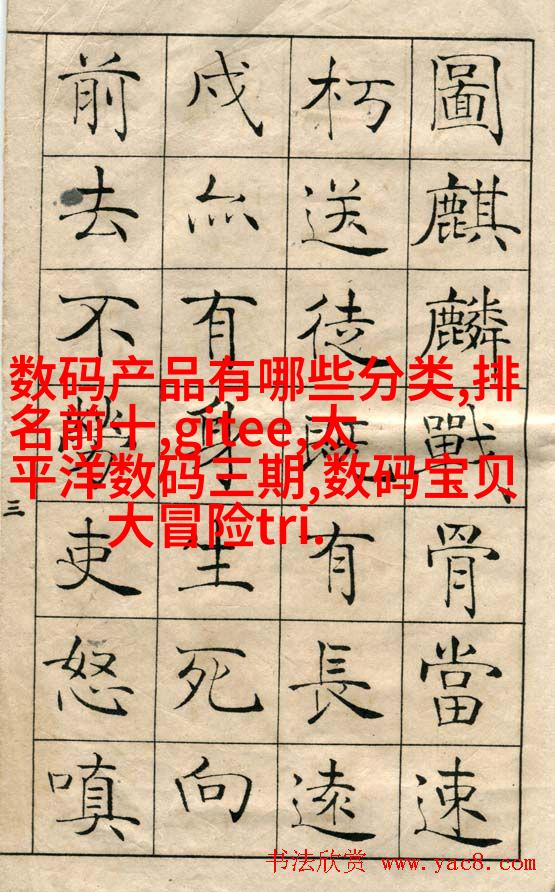 圖麒麟戰骨當速
朽送徒既有長遠
戍亦有身生死向
前去不勞吏怒嗔
三
数码产品有哪些分类,排
名前十,gitee,太
平洋数码三期,数码宝贝
大冒险tri.
书法欣赏 www.yac8.com